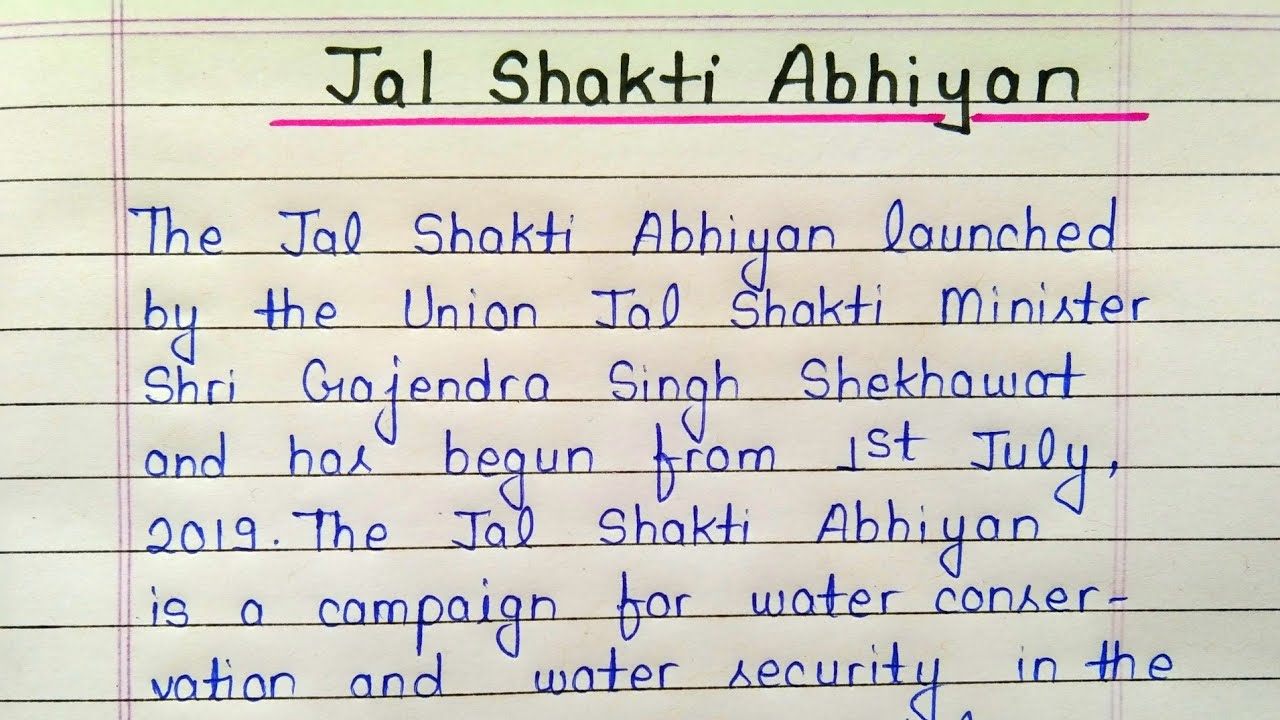 Jal Shakti Abhiyan
The Jal Shakti Abhiyan launched
by the Union Jal Shakti Minister
Shri Gajendra Singh Shekhawat
and has begun from 1st July,
2019. The Jal Shakti Abhiyan
is a campaign for water conser-
vation and water security in the